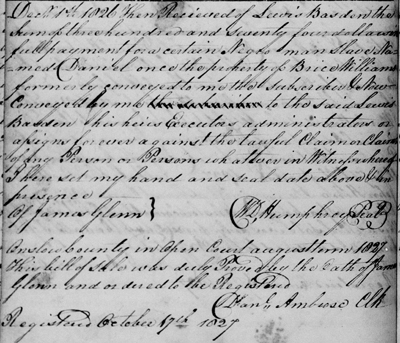 Decr 1st 1826 Then Recieved of Lewis Basden the
Sum of three hundred and Seventy four dollars in
full payment for a certain Negro man Slave Na-
med Daniel once the property of Brice William
formerly conveyed to me the Subscriber & Now
Conveyed by me to the said Lewis
Basden his heirs Executors administrators or
assigns forever against the lawful Claim or Claims
of any Person or Persons whatever in Witness whereof
I here set my hand and seal date above & in
presence
of James Glenn } D Humphrey Seal
Onslow County in Open Court august term 1827
This bill of Sale was duly Proved by the Oath of James
Glenn and ordered to be Registered
Danl Ambrose Clk
Registered October 17th 1827